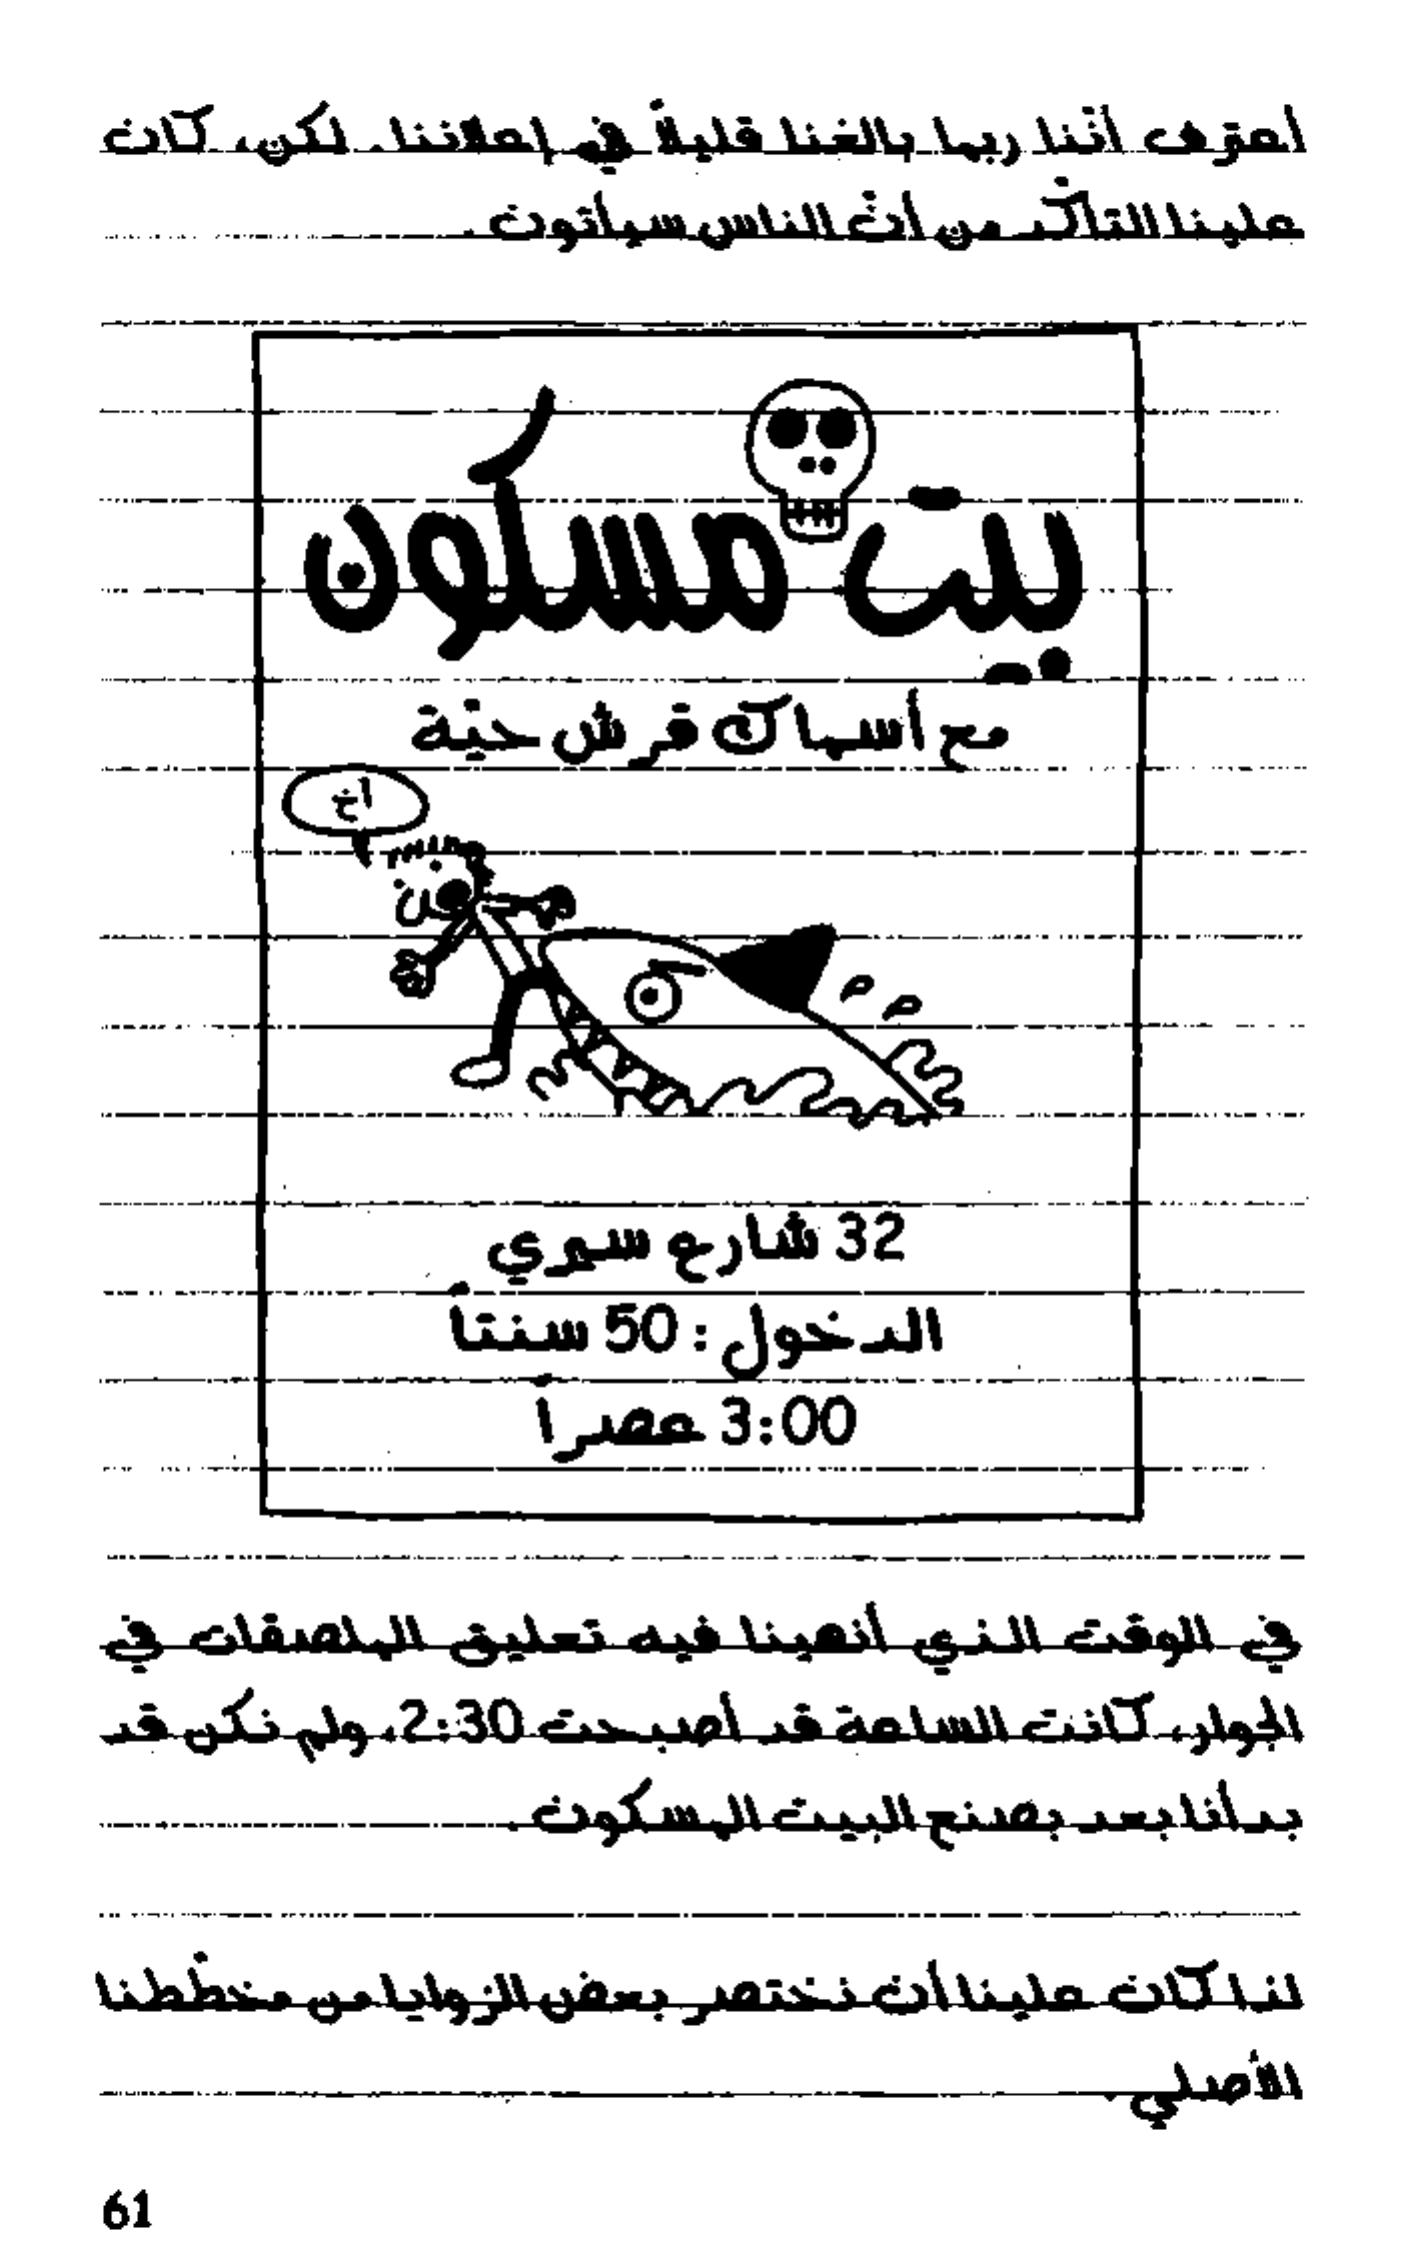 أعترف أنّنا ربما بالغنا قليلاً في إعلاننا. لكن، كان
علينا التأكّد من أنّ الناس سيأتون.
بيت مسكون
مع أسماك قرش حيّة
آخ
32 شارع سيري
الدخول: 50 سنتاً
3:00 عصراً
في الوقت الذي أنهينا فيه تعليق الملصقات في
الجوار، كانت الساعة قد أصبحت 2:30، ولم نكن قد
بدأنا بعد بصنع البيت المسكون.
لذا كان علينا أن نختصر بعض الزوايا من مخطّطنا
الأصلي.
61